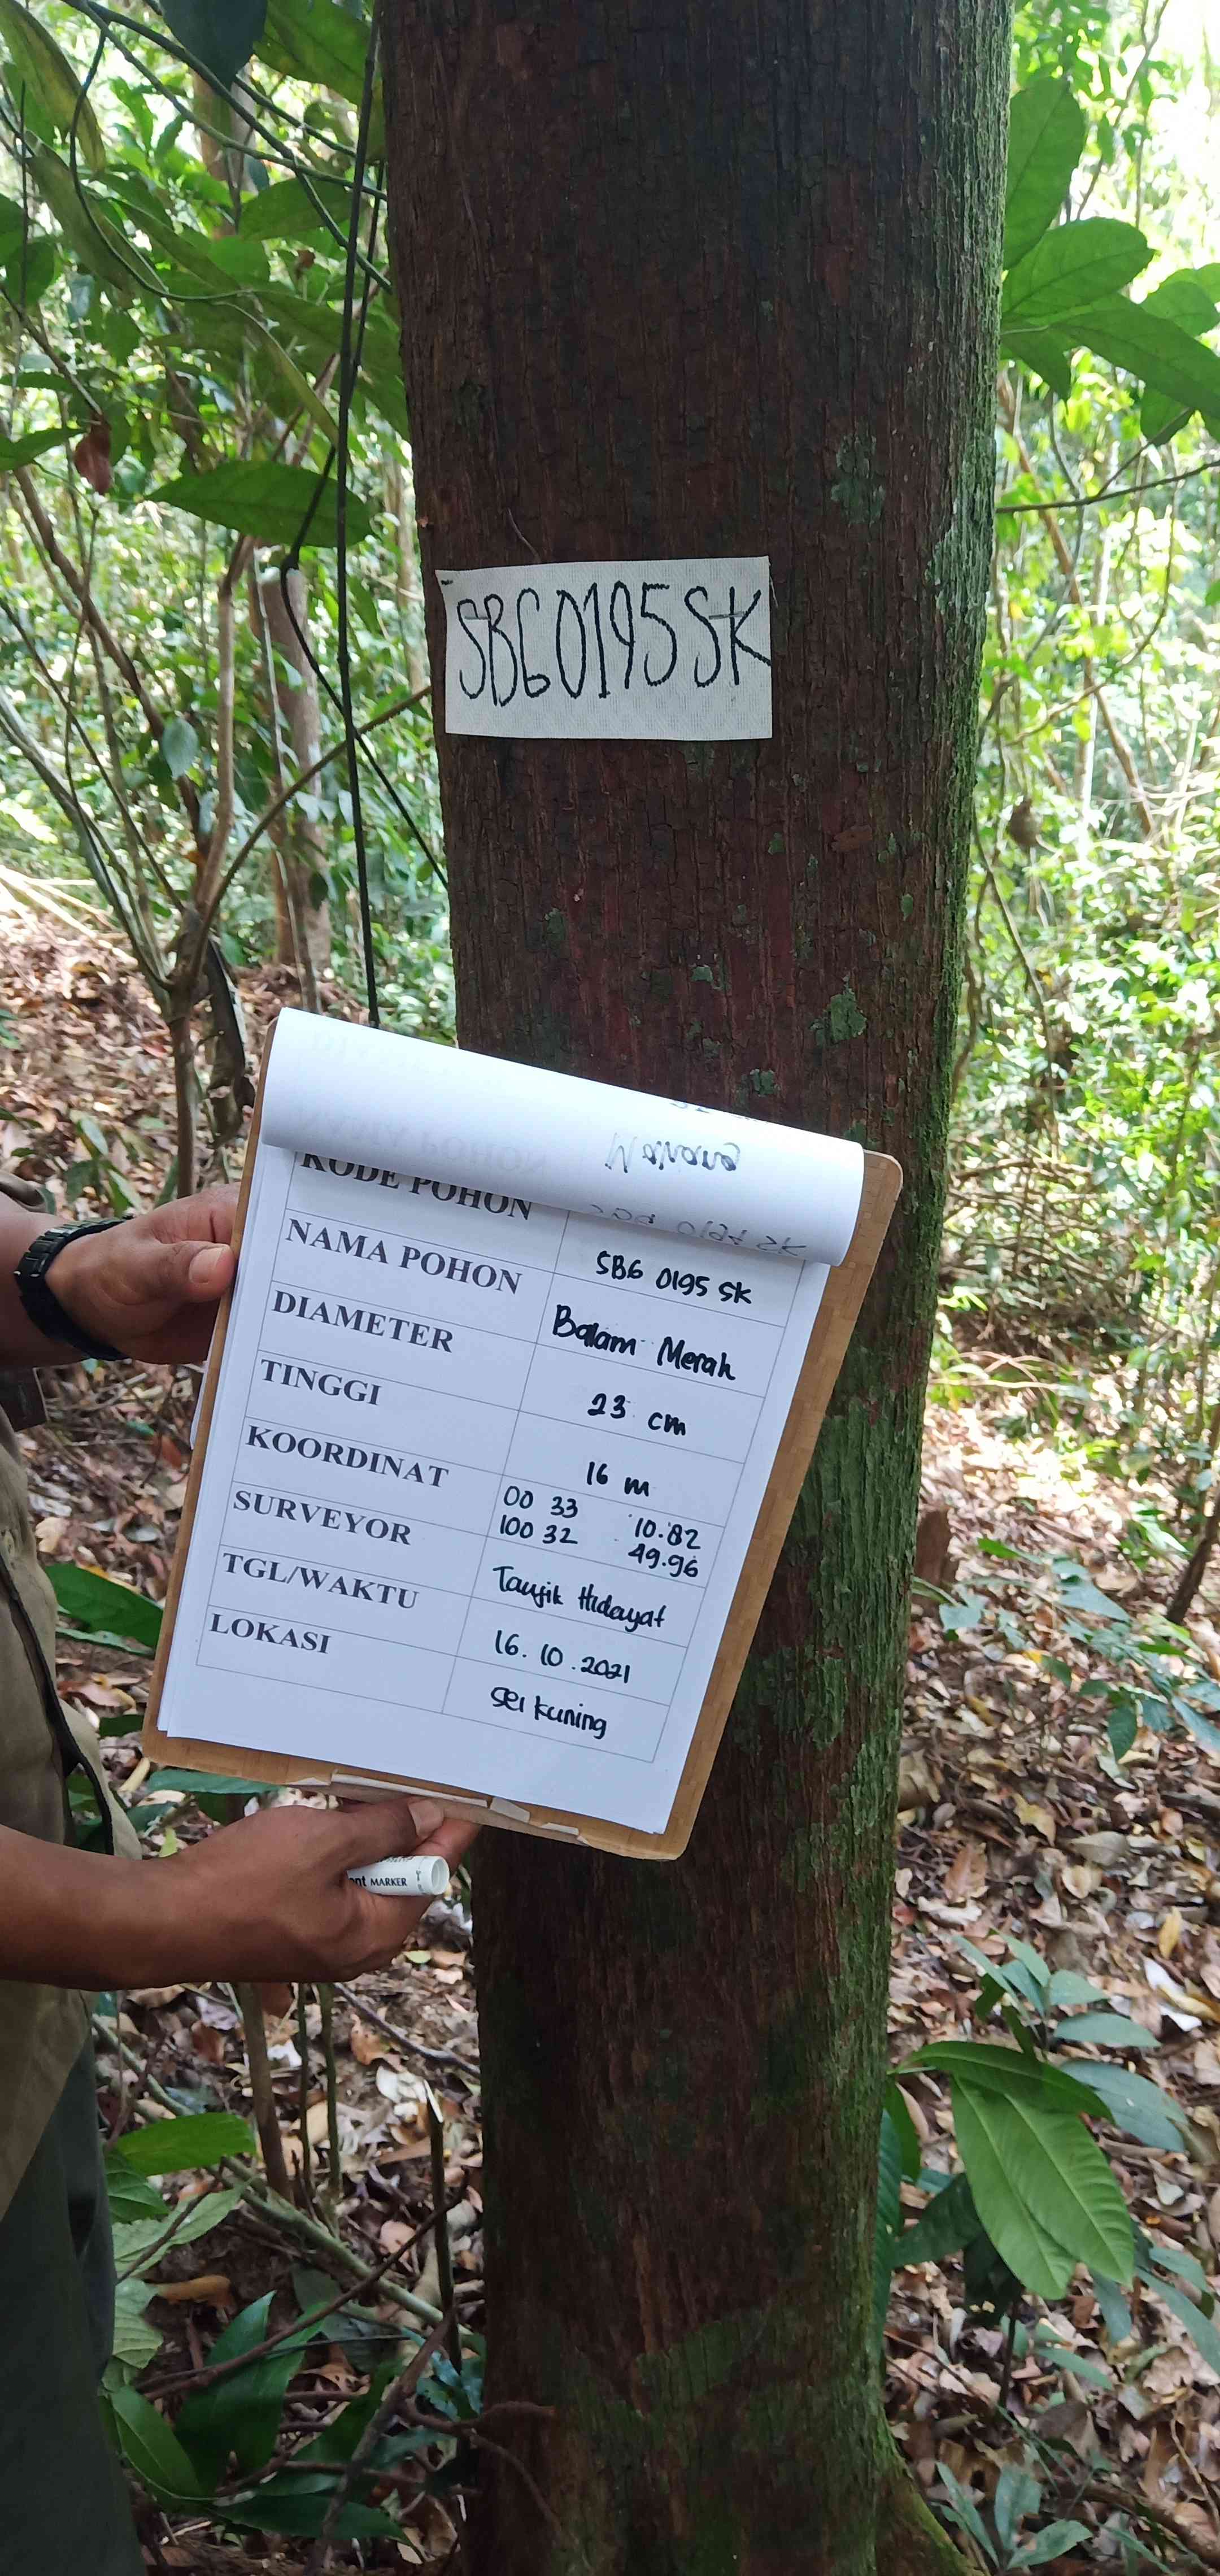 SBG0195SK
Meranti
KODE POHON SBG 0195 SK
NAMA POHON Balam Merah
DIAMETER 23 cm
TINGGI 16 m
KOORDINAT 00 33 10.82
100 32 49.96
SURVEYOR Taufik Hidayat
TGL/WAKTU 16.10.2021
LOKASI Sei kuning
MARKER